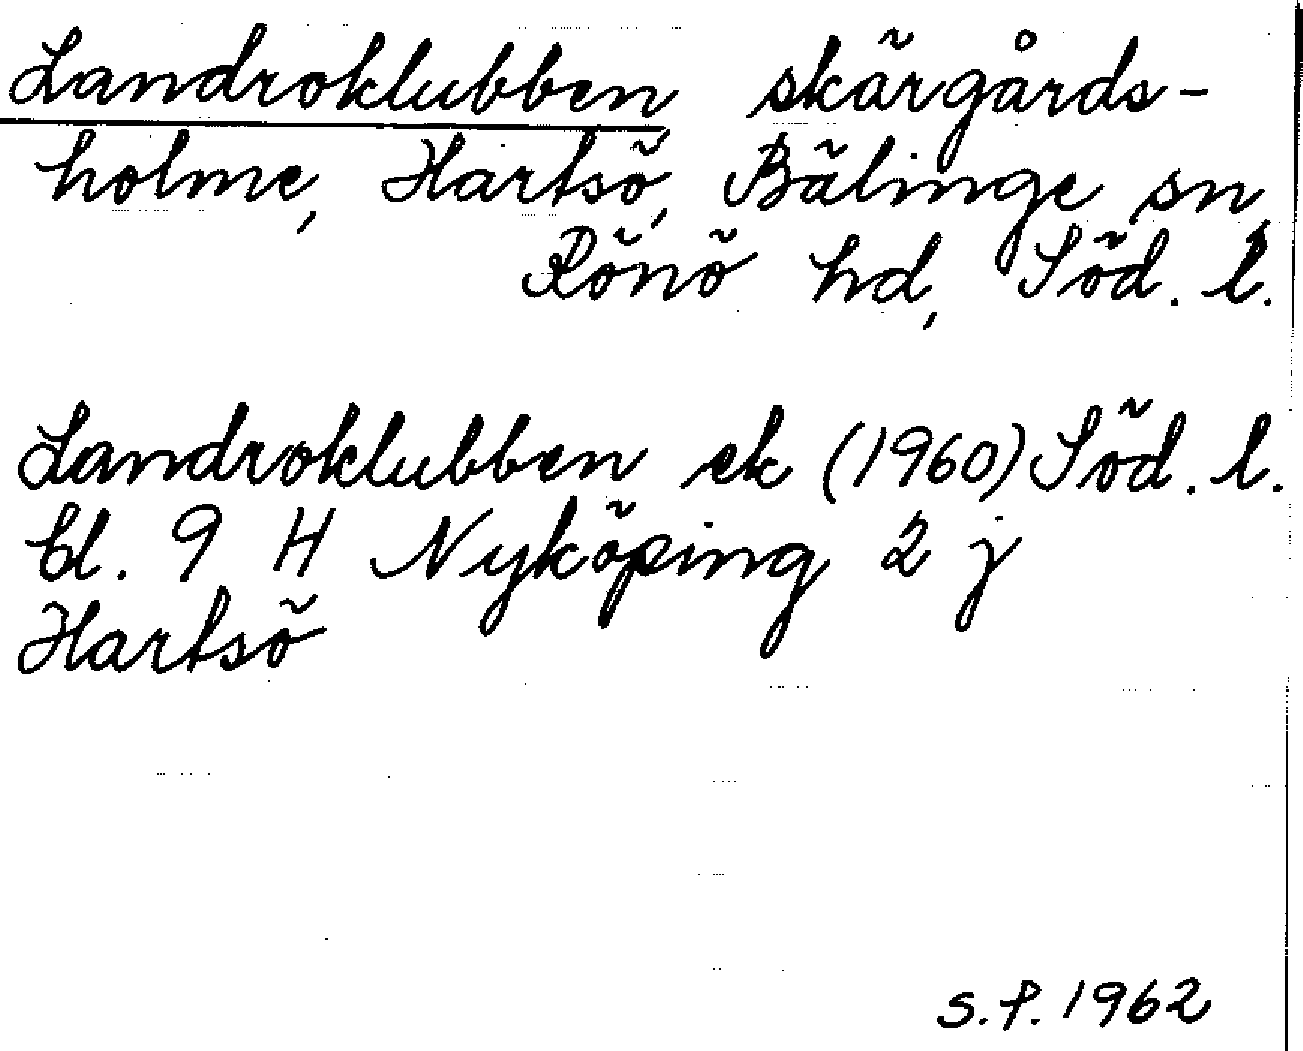 Landroklubben, skärgårds-
holme, Hartsö, Bälinge sn,
Rönö hd, Söd. l.
Landroklubben ek (1960) Söd. l.
bl. 9 H Nyköping 2 j
Hartsö
S.P. 1962